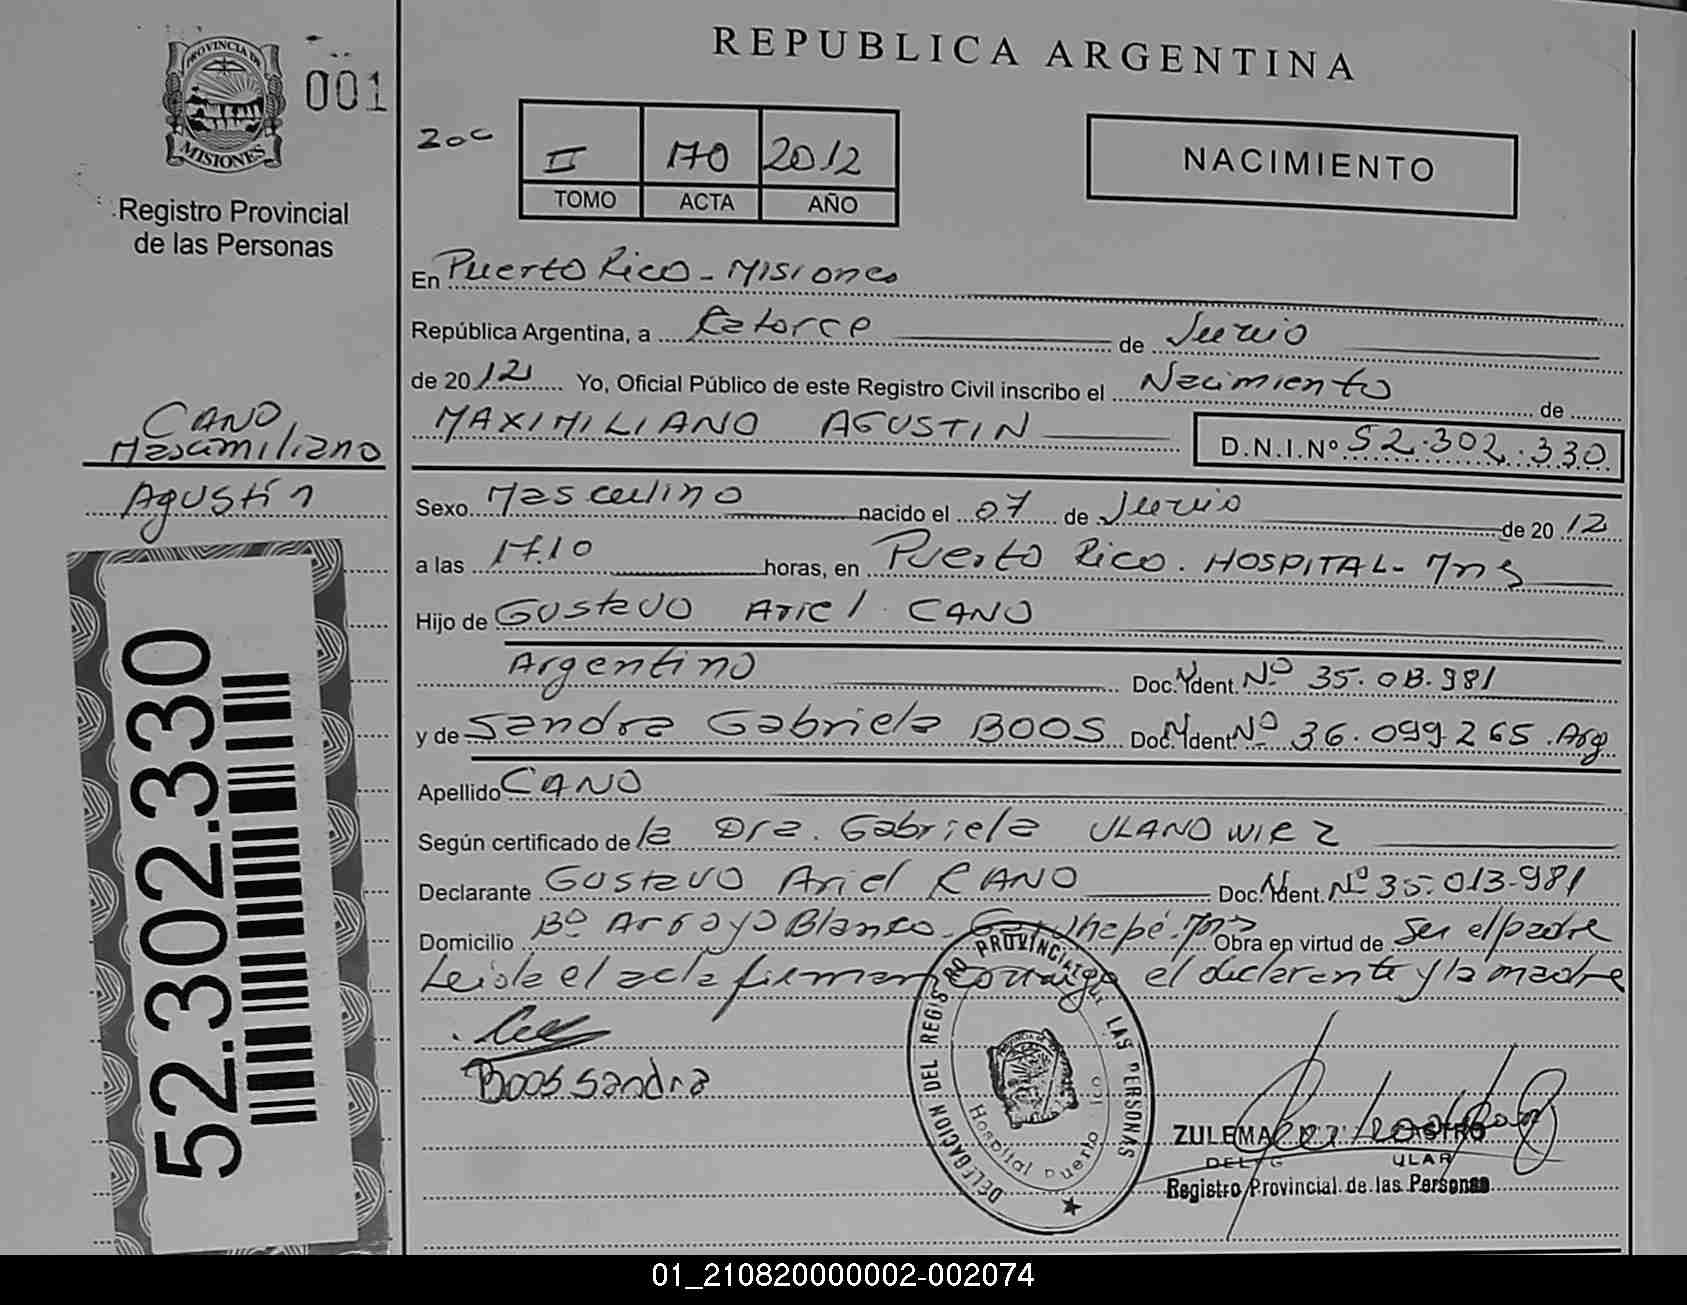 PROVINCIA DE
MISIONES
001
Registro Provincial
de las Personas
CANO
Maximiliano
Agustín
52.302.330
REPUBLICA ARGENTINA
II 170 2012
TOMO ACTA AÑO
NACIMIENTO
En Puerto Rico - Misiones
República Argentina, a Catorce de Junio
de 2012 Yo, Oficial Público de este Registro Civil inscribo el Nacimiento de
MAXIMILIANO AGUSTIN D.N.I.Nº 52.302.330
Sexo Masculino nacido el 07 de Junio de 2012
a las 17.10 horas, en Puerto Rico. HOSPITAL - Mns
Hijo de Gustavo Ariel CANO
Argentino Doc. Ident. Nº 35.013.981
y de Sandra Gabriela BOOS Doc. Ident. Nº 36.099.265. Arg
Apellido CANO
Según certificado de la Dra. Gabriela ULANOWIEZ
Declarante Gustavo Ariel CANO Doc. Ident. Nº 35.013.981
Domicilio Bº Arroyo Blanco - Mns Obra en virtud de Ser el padre
Leida el acta firman conmigo el declarante y la madre
Boos Sandra
DELEGACION DEL REGISTRO PROVINCIAL DE LAS PERSONAS
Hospital Puerto Rico
ZULEMA
Registro Provincial de las Personas
01_210820000002-002074